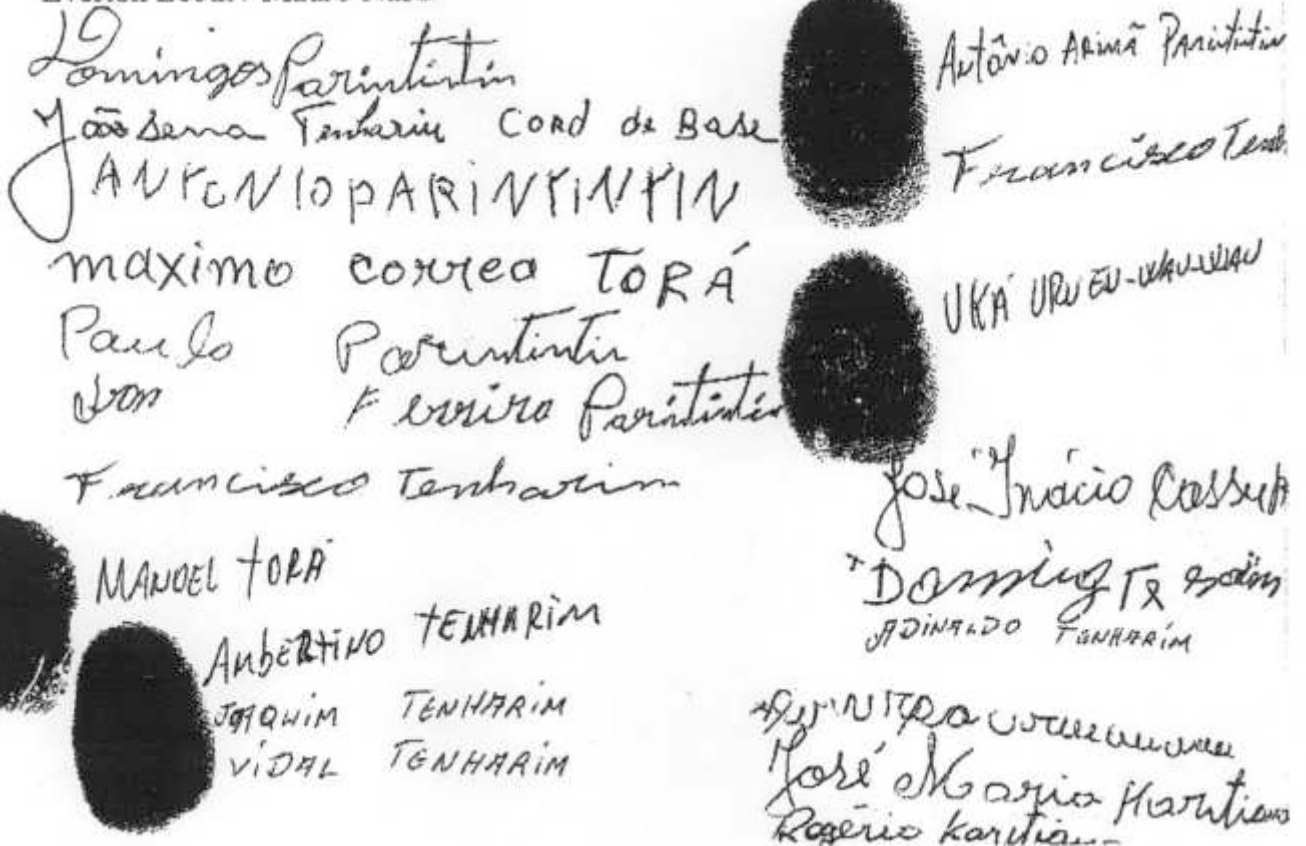 Domingos Parintintin
João Sena Tenharin Cord de Base
ANTONIO PARINTINTIN
maximo correa TORÁ
Paulo Parintintin
Ivan Ferrira Parintintin
Francisco Tenharim
MANOEL TORÁ
AMBERTINO TENHARIM
JOAQUIM TENHARIM
VIDAL TENHARIM
Antônio Arimã Parintintin
Francisco Tenh
UKÁ URU EU-WAU-WAU
José Inácio Cassup
Doming
ADINALDO TENHARIM
José Maria Karitiana
Rogério Karitiana